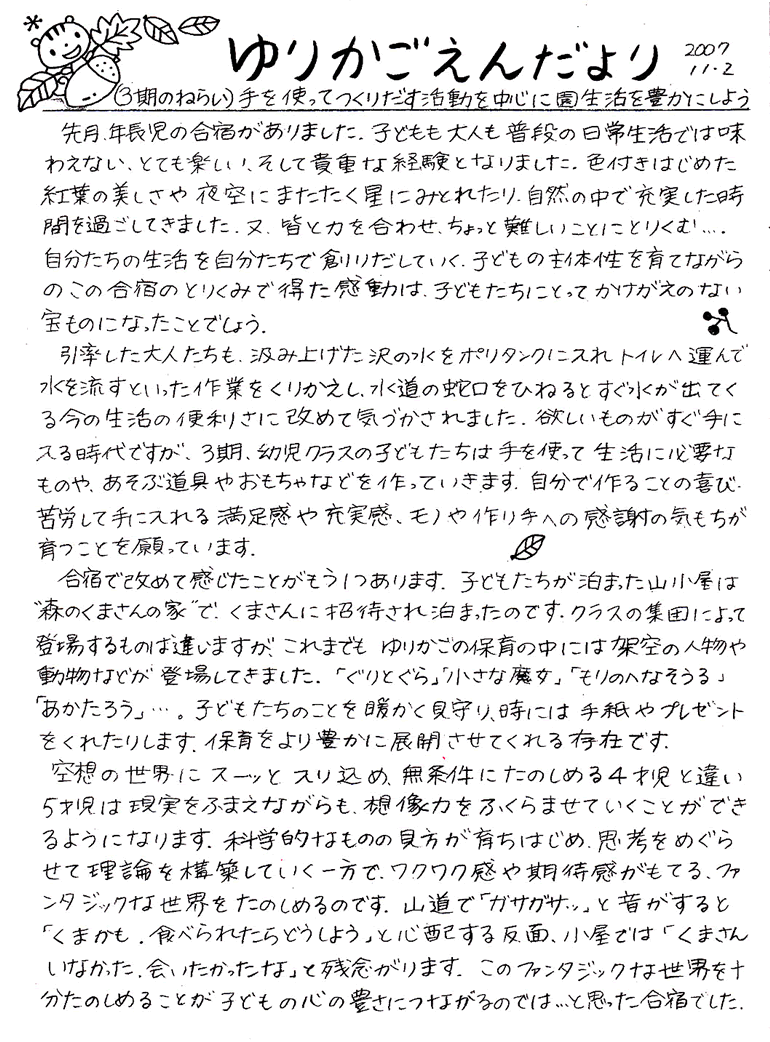 ゆりかごえんだより
2007
11.2
(3期のねらい)手を使ってつくりだす活動を中心に園生活を豊かにしよう
先月、年長児の合宿がありました。子どもも大人も普段の日常生活では味
わえない、とても楽しい、そして貴重な経験となりました。色付きはじめた
紅葉の美しさや夜空にまたたく星にみとれたり、自然の中で充実した時
間を過ごしてきました。又、皆と力を合わせ、ちょっと難しいことにとりくむ…。
自分たちの生活を自分たちで創りりだしていく、子どもの主体性を育てながら
のこの合宿のとりくみで得た感動は、子どもたちにとってかけがえのない
宝ものになったことでしょう。
引率した大人たちも、汲み上げた沢の水をポリタンクに入れトイレへ運んで
水を流すといった作業をくりかえし、水道の蛇口をひねるとすぐ水が出てく
る今の生活の便利さに改めて気づかされました。欲しいものがすぐ手に
入る時代ですが、3期、幼児クラスの子どもたちは手を使って生活に必要な
ものや、あそぶ道具やおもちゃなどを作っていきます。自分で作ることの喜び、
苦労して手に入れる満足感や充実感、モノや作り手への感謝の気もちが
育つことを願っています。
合宿で改めて感じたことがもう1つあります。子どもたちが泊まった山小屋は
"森のくまさんの家"で、くまさんに招待され泊まったのです。クラスの集団によって
登場するものは違いますが、これまでもゆりかごの保育の中には架空の人物や
動物などが登場してきました。「ぐりとぐら」「小さな魔女」「もりのへなそうる」
「あかたろう」…。子どもたちのことを暖かく見守り、時には手紙やプレゼント
をくれたりします。保育をより豊かに展開させてくれる存在です。
空想の世界にスーッとスり込め、無条件にたのしめる4才児と違い
5才児は現実をふまえながらも、想像力をふくらませていくことができ
るようになります。科学的なものの見方が育ちはじめ、思考をめぐら
せて理論を構築していく一方で、ワクワク感や期待感がもてる、ファ
ンタジックな世界をたのしめるのです。山道で「ガサガサッ」と音がすると
「くまかも。食べられたらどうしよう」と心配する反面、小屋では「くまさん
いなかった、会いたかったな」と残念がります。このファンタジックな世界を十
分たのしめることが子どもの心の豊さにつながるのでは…と思った合宿でした。